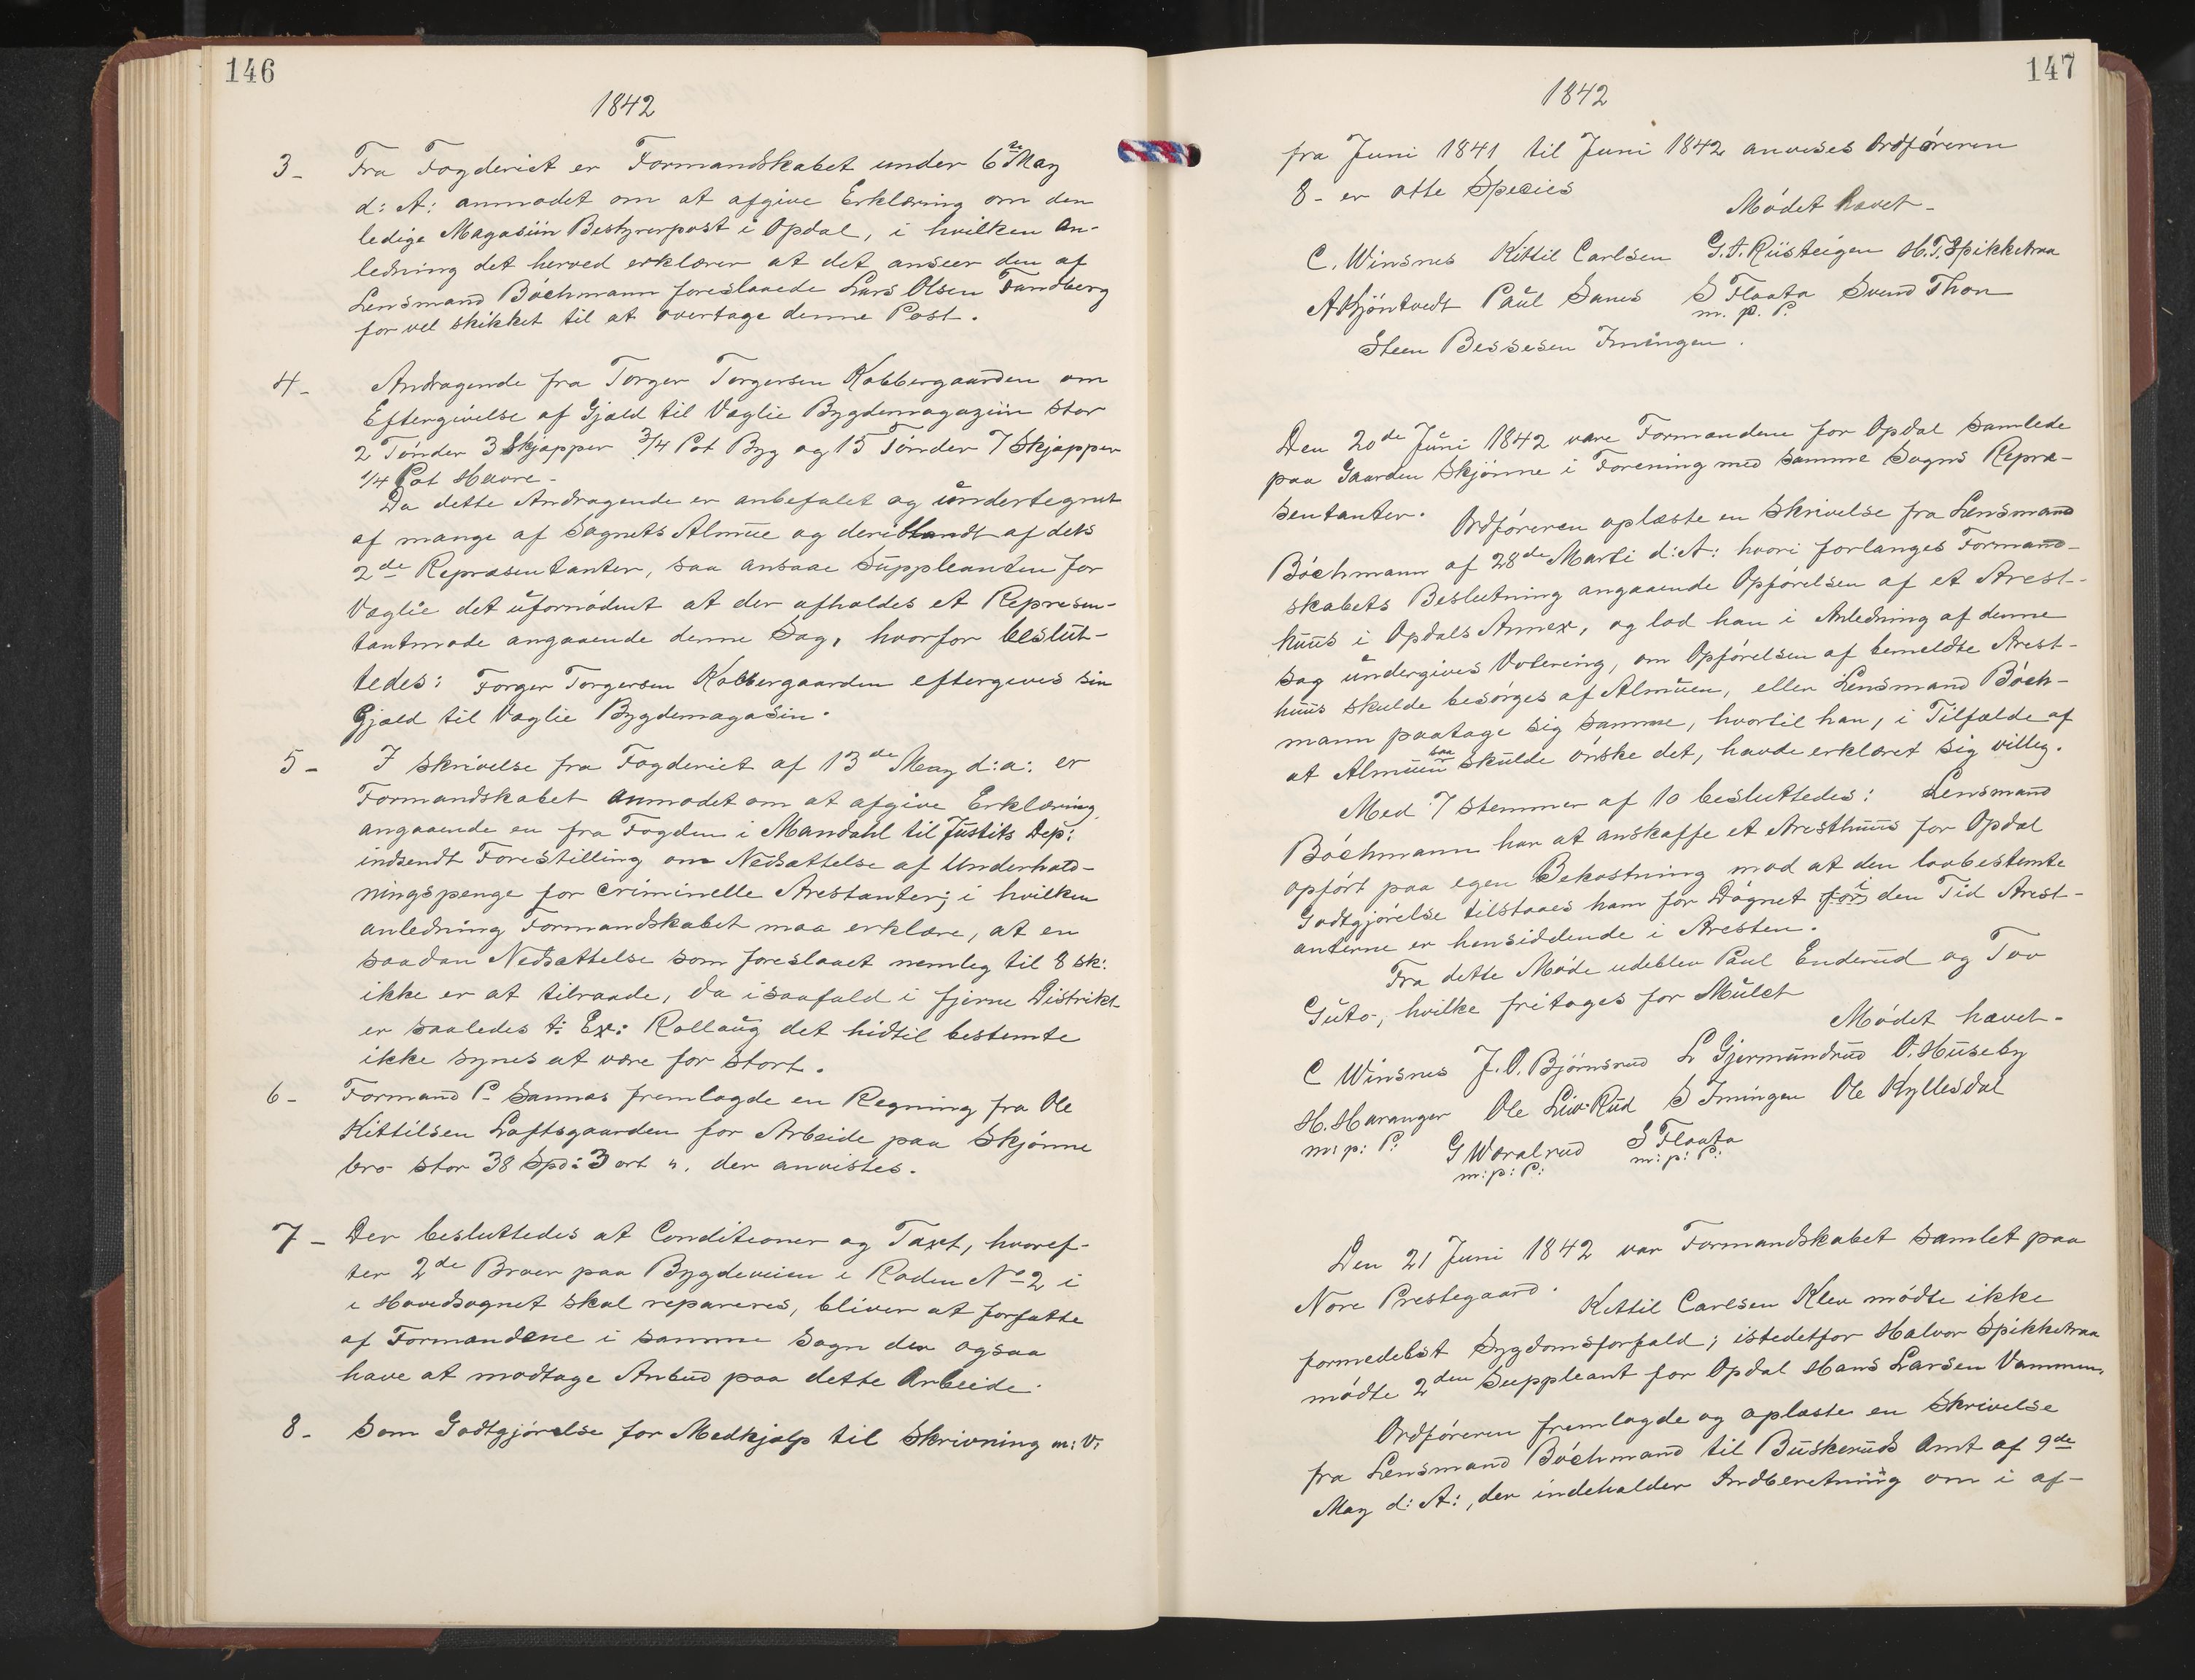 146
1842
3- Fra Fogderiet er Formandskabet under 6te May
d: A: anmodet om at afgive Erklæring om den
ledige Magasiin Bestyrerpost i Opdal, i hvilken An-
ledning det herved erklærer at det anseer den af
Lensmand Bóchmann foreslaaede Lars Olsen Tandberg
for vel skikket til at overtage denne Post.
4- Andragende fra Torger Torgersen Kobbergaarden om
Eftergivelse af Gjæld til Væglie Bygdemagaziin stor
2 Tónder 3 Skjæpper 3/4 Pot Byg og 15 Tónder 7 Skjæpper
1/4 Pot Havre-
Da dette Andragende er anbefalet og undertegnet
af mange af Sognets Almue og deriblandt af dets
2de Repræsentanter, saa ansaae Suppleanten for
Væglie det ufornódent at der afholdes et Repræsen-
tantmøde angaaende denne Sag, hvorfor beslut-
tedes: Torger Torgersen Kobbergaarden eftergives sin
Gjæld til Væglie Bygdemagasin.
5- I skrivelse fra Fogderiet af 13de May d:a: er
Formandskabet anmodet om at afgive Erklæring
angaaende en fra Fogden i Mandahl til Justits Dep:
indsendt Forestilling om Nedsættelse af Underhold-
ningspenge for criminelle Arestanter; i hvilken
anledning Formandskabet maa erklære, at en
saadan Nedsættelse som foreslaaet nemleg til 8 sk:
ikke er at tilraade, da isaafald i fjerne Distrikt
er saaledes t: Ex: Rollaug det hidtil bestemte
ikke synes at være for stort.
6- Formand P. Sannes fremlagde en Regning fra Ole
Kittilsen Loftsgaarden for Arbeide paa Skjónne
bro stor 38 Spd: 3 ort ". der anvistes.
7- Der besluttedes at Conditioner og Taxt, hvoref-
ter 2de Broer paa Bygdeveien i Roden No 2 i
i Hovedsognet skal repareres, bliver at forfatte
af Formændene i samme Sogn der ogsaa
have at modtage Anbud paa dette Arbeide.
8- Som Godtgjórelse for Medhjælp til Skrivning m: V:
147
1842
fra Juni 1841 til Juni 1842 anvises Ordfóreren
8- er otte Species
Módet hævet-
C. Winsnes Kittil Carlsen G.A. Rusteigen H.T. Spikketraa
A Kjöntvedt Paul Sanes S Flaata Svend Thon
m. p. P.
Steen Bessesen Imingen.
Den 20de Juni 1842 vare Formændene for Opdal samlede
paa Gaarden Skjónne i Forening med samme Sogns Repræ-
sentanter. Ordfóreren oplæste en Skrivelse fra Lensmand
Bóchmann af 28de Marti d:A: hvori forlanges Formand-
skabets Beslutning angaaende Opfórelsen af et Arest-
huus i Opdals Annex, og lod han i Anledning af denne
Sag undergives Votering, om Opfórelsen af bemeldte Arest-
huus skulde besórges af Almuen, eller Lensmand Bóch-
mann paatage sig samme, hvortil han, i Tilfælde af
at Almuen saa skulde ónske det, havde erklæret sig villeg.
Med 7 Stemmer af 10 besluttedes: Lensmand
Bóchmann har at anskaffe et Aresthuus for Opdal
opfórt paa egen Bekostning mod at den lovbestemte
Godtgjórelse tilstaaes ham for Dógnet for i den Tid Arest-
anterne er hensiddende i Aresten.
Fra dette Móde udeblev Paul Enderud og Tov
Guto, hvilke fritages for Mulct
Módet hævet-
C Winsnes J. O. Bjórnsrud L Gjermundrud O. Huseby
H. Haranger Ole Liv-Rud S Imingen Ole Kyllesdal
m: p: P. G Woralrud S Flaata
m: p: P: m: p: P:
Den 21 Juni 1842 var Formandskabet samlet paa
Nore Prestegaard. Kittil Carlsen Klev módte ikke
formedelst Sygdomsforfald; istedetfor Halvor Spikketraa
módte 2den Suppleant for Opdal Hans Larsen Vammen.
Ordfóreren fremlagde og oplæste en Skrivelse
fra Lensmand Bóchmand til Buskeruds Amt af 9de
May d: A:, der indeholder Indberetning om i af-